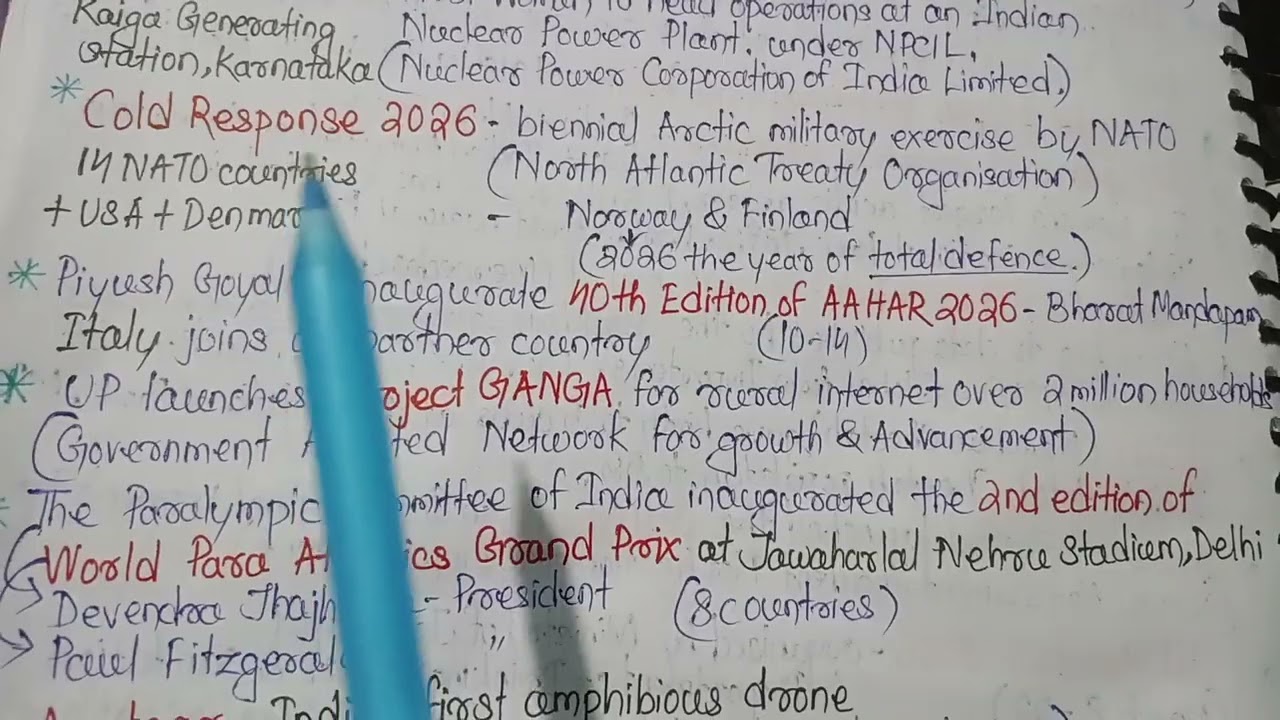 to head operations at an Indian
Kaiga Generating Nuclear Power Plant. under NPCIL.
station, Karnataka (Nuclear Power Corporation of India Limited.)
* Cold Response 2026 - biennial Arctic military exercise by NATO
14 NATO countries (North Atlantic Treaty Organisation)
+ USA + Denmar - Norway & Finland
(2026 the year of total defence.)
* Piyush Goyal naugurate 40th Edition of AAHAR 2026 - Bharat Mandapam
Italy joins parther country (10-14)
* UP launches oject GANGA for rural internet over 2 million households
(Government ted Network for growth & Advancement)
The Paralympic mmittee of India inaugurated the 2nd edition of
World Para At ics Grand Prix at Jawaharlal Nehru Stadium, Delhi
→ Devendra Jhajh - President (8 countries)
→ Paul Fitzgeral "
Indi first amphibious drone